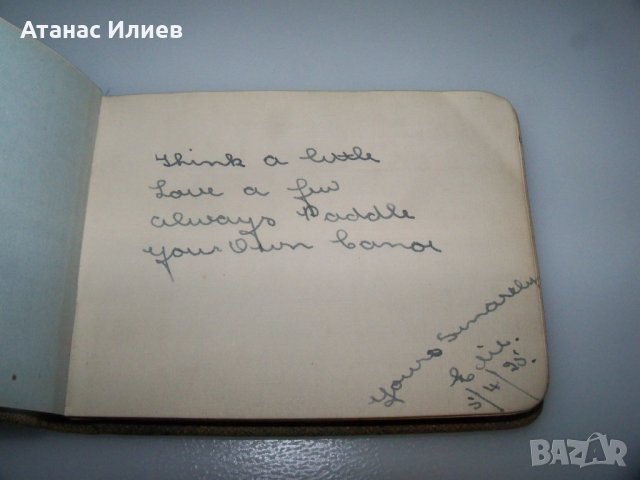 Атанас Илиев
Think a little
Love a few
always Paddle
your Own Canoe
Yours Sincerely
Edie.
5/4/25.
BAZAR